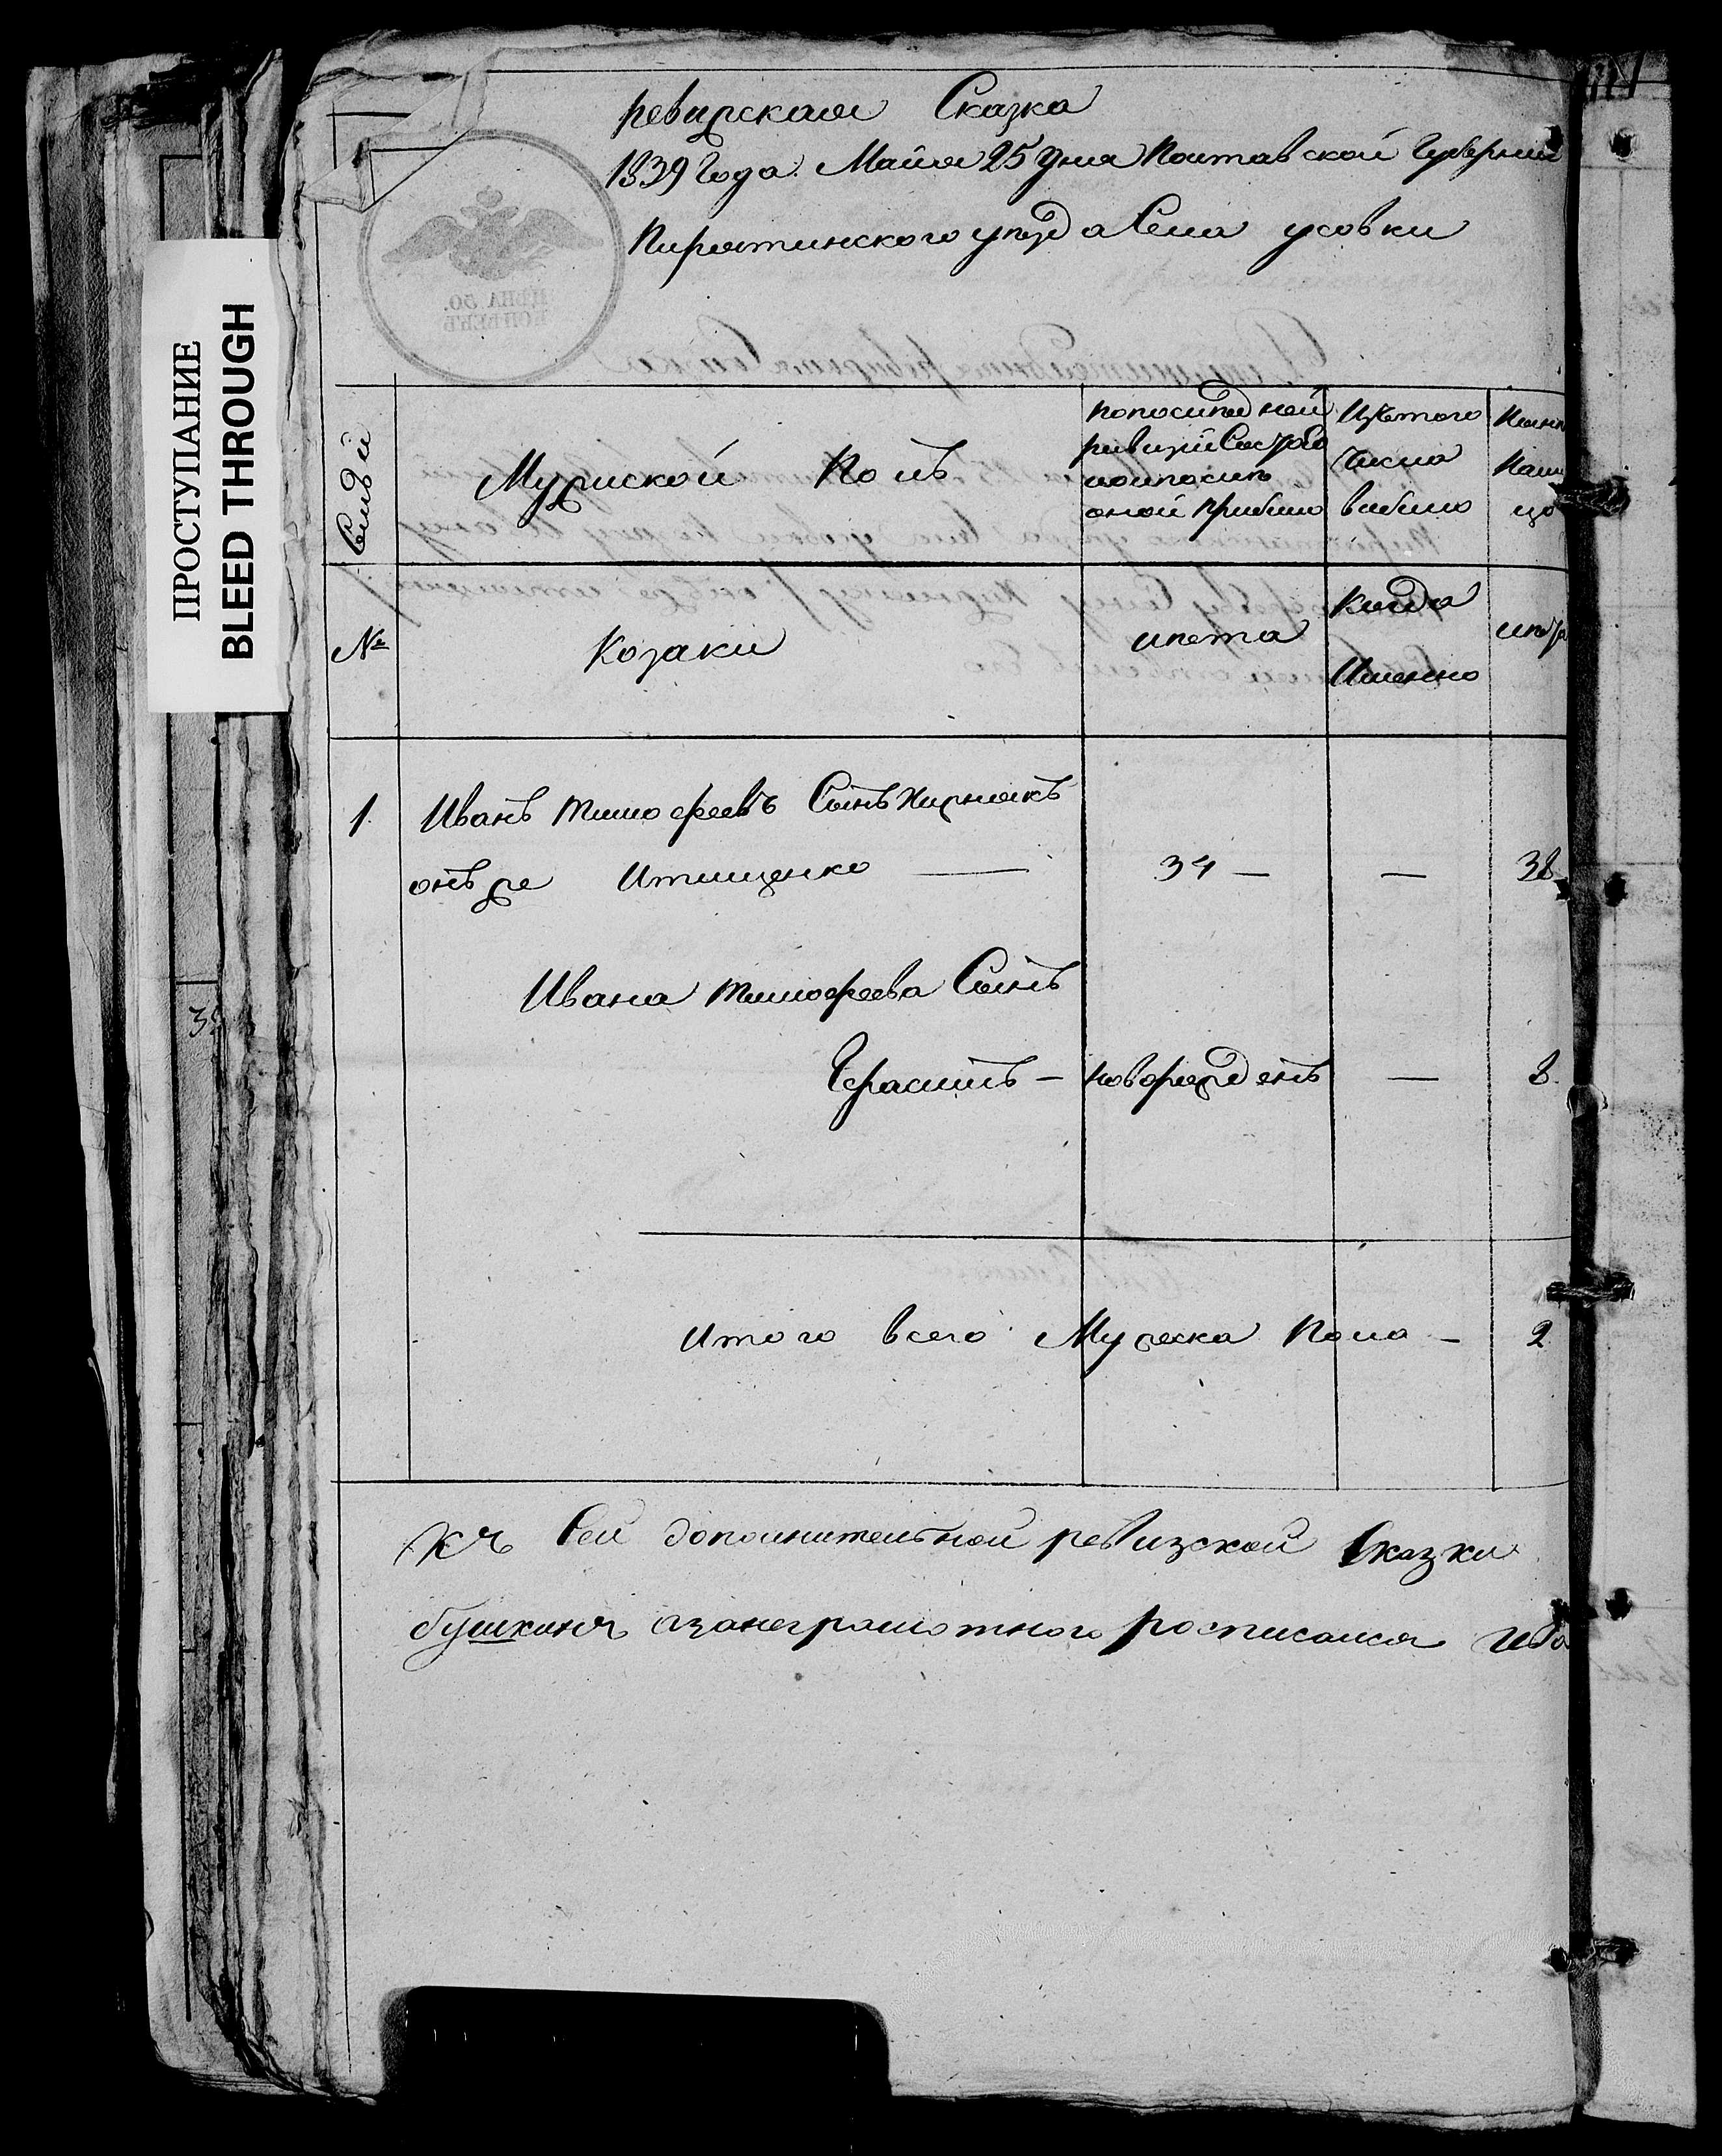 ПРОСТУПАНИЕ
BLEED THROUGH
ревизская Сказка
1839 Года Майя 25 дня Полтавской Губернии
Пирятинского уезда Села усовки
ЦѢНА 50.
КОПѢЕКЪ
Семьи
Мужиской Полъ
попоследней
ревизии Состояло
ипопосле
оной прибыло
Изтого
Числа
выбыло
Ныне
Нали
цо
№
Козаки
лета
Когда
Имянно
лета
1. Иванъ тимофеевъ Сынъ Кирнякъ
онъ же Итищенко — 34 — — 38
Ивана тимофеева Сынъ
Герасимъ — новорожденъ — 3.
Итого всего Мужеска Пола — 2
Къ Сей дополнительной ревизской Сказки
занеграмотного росписался